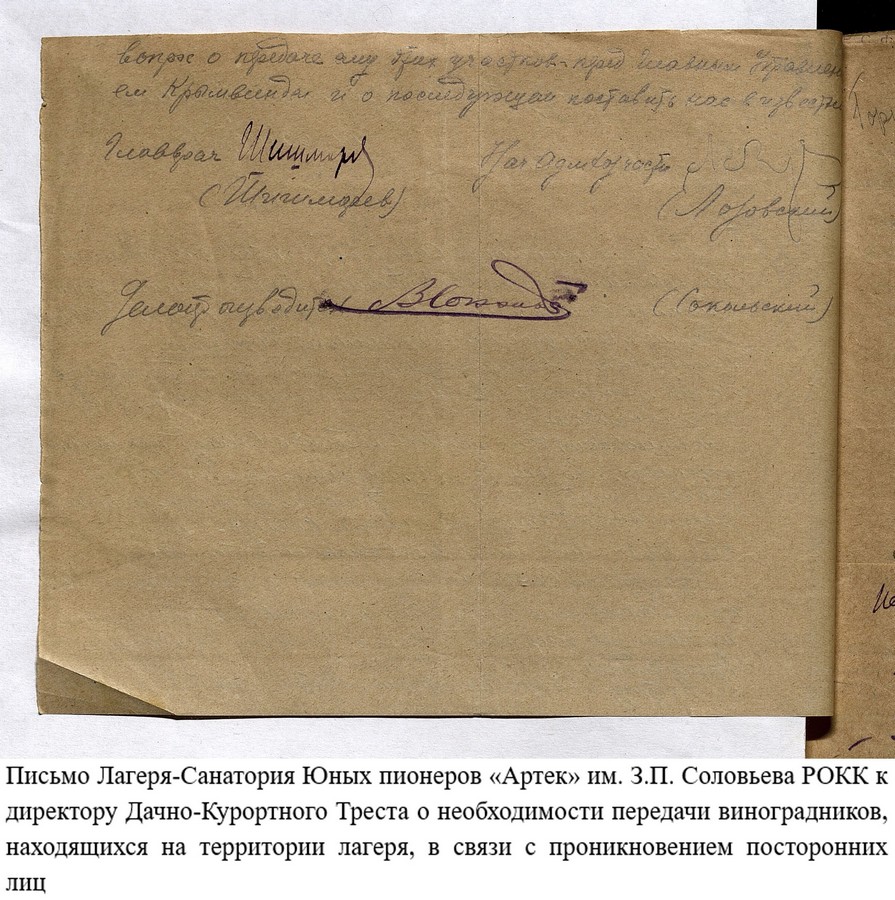 вопрос о передаче ему этих участков перед Главным Управлен
ем Крымвинда и о последующем поставить нас в известн
Главврач Шишмарев
(Шишмарев)
Нач адмхозчасти
(Лозовский)
Делопроизводитель
(Сокольский)
Письмо Лагеря-Санатория Юных пионеров «Артек» им. З.П. Соловьева РОКК к
директору Дачно-Курортного Треста о необходимости передачи виноградников,
находящихся на территории лагеря, в связи с проникновением посторонних
лиц